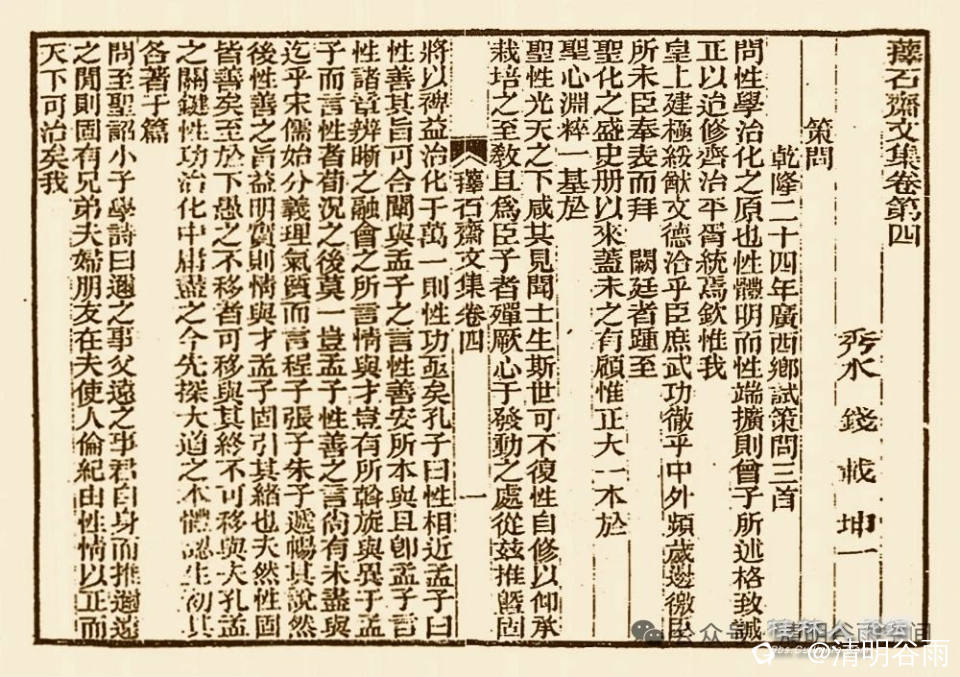 蘀石齋文集卷第四
秀水 錢載 坤一
策問
乾隆二十四年廣西鄉試策問三首
問性學治化之原也性體明而性端擴則曾子所述格致誠
正以迨修齊治平胥統焉欽惟我
皇上建極綏猷文德洽乎臣庶武功徹乎中外頻歲邊徼民
所未臣奉表而拜 闕廷者踵至
聖化之盛史册以來蓋未之有顧惟正大一本於
聖心淵粹一基於
聖性光天之下咸其見聞士生斯世可不復性自修以仰承
栽培之至敎且爲臣子者殫厥心于發動之處從茲推曁固
蘀石齋文集卷四
一
將以裨益治化于萬一則性功亟矣孔子曰性相近孟子曰
性善其旨可合闡與孟子之言性善安所本與且卽孟子言
性諸章辨晰之融會之所言情與才豈有所斡旋與異于孟
子而言性者荀況之後莫一豈孟子性善之言尚有未盡與
迄乎宋儒始分義理氣質而言程子張子朱子遞暢其說然
後性善之旨益明質則情與才孟子固引其緒也夫然性固
皆善矣至於下愚之不移者可移與其終不可移與夫孔孟
之關鍵性功治化中庸盡之今先探大道之本體認生初其
各著于篇
問至聖詔小子學詩曰邇之事父遠之事君自身而推邇遠
之閒則固有兄弟夫婦朋友在夫使人倫紀由性情以正而
天下可治矣我
公众号
清明谷雨
@清明谷雨